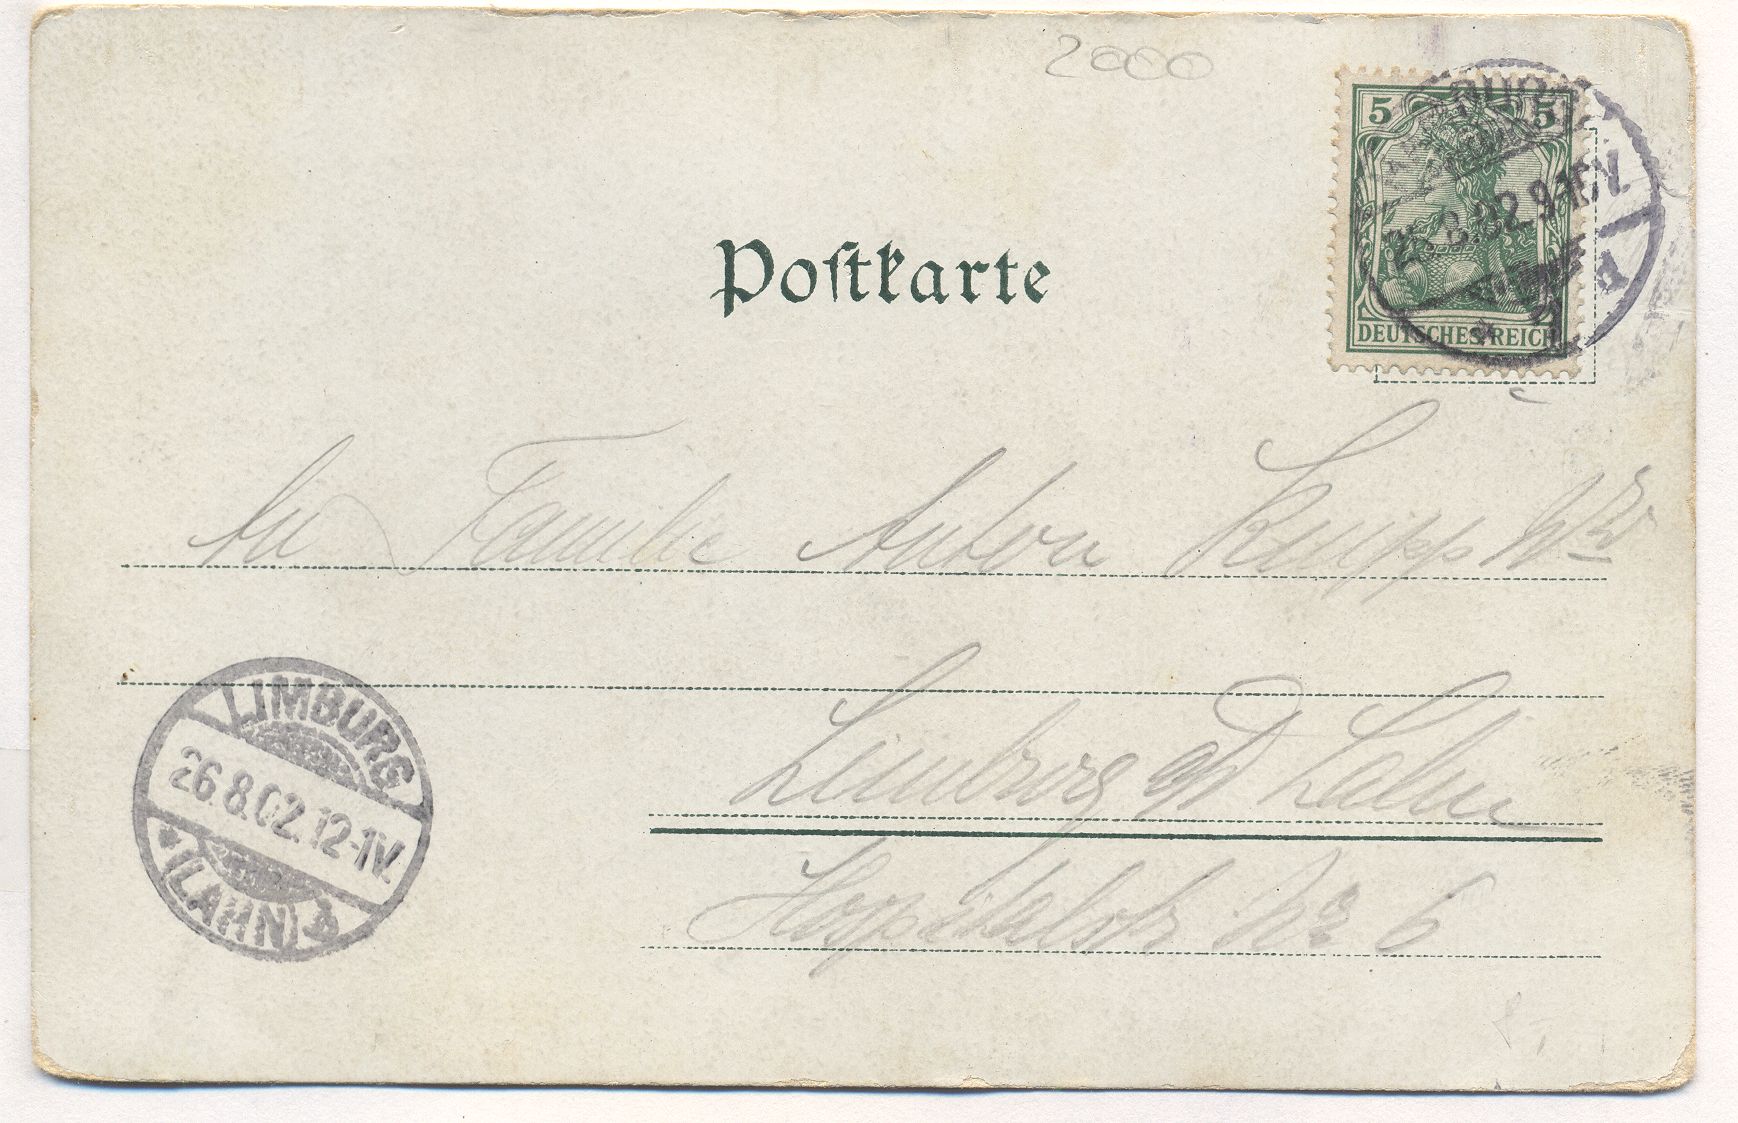 2000
5 5
DEUTSCHES REICH
Postkarte
An Familie Anton Knapp
Limburg a/d Lahn
Hospitalstr No 6
LIMBURG
26.8.02.12-1V.
(LAHN)